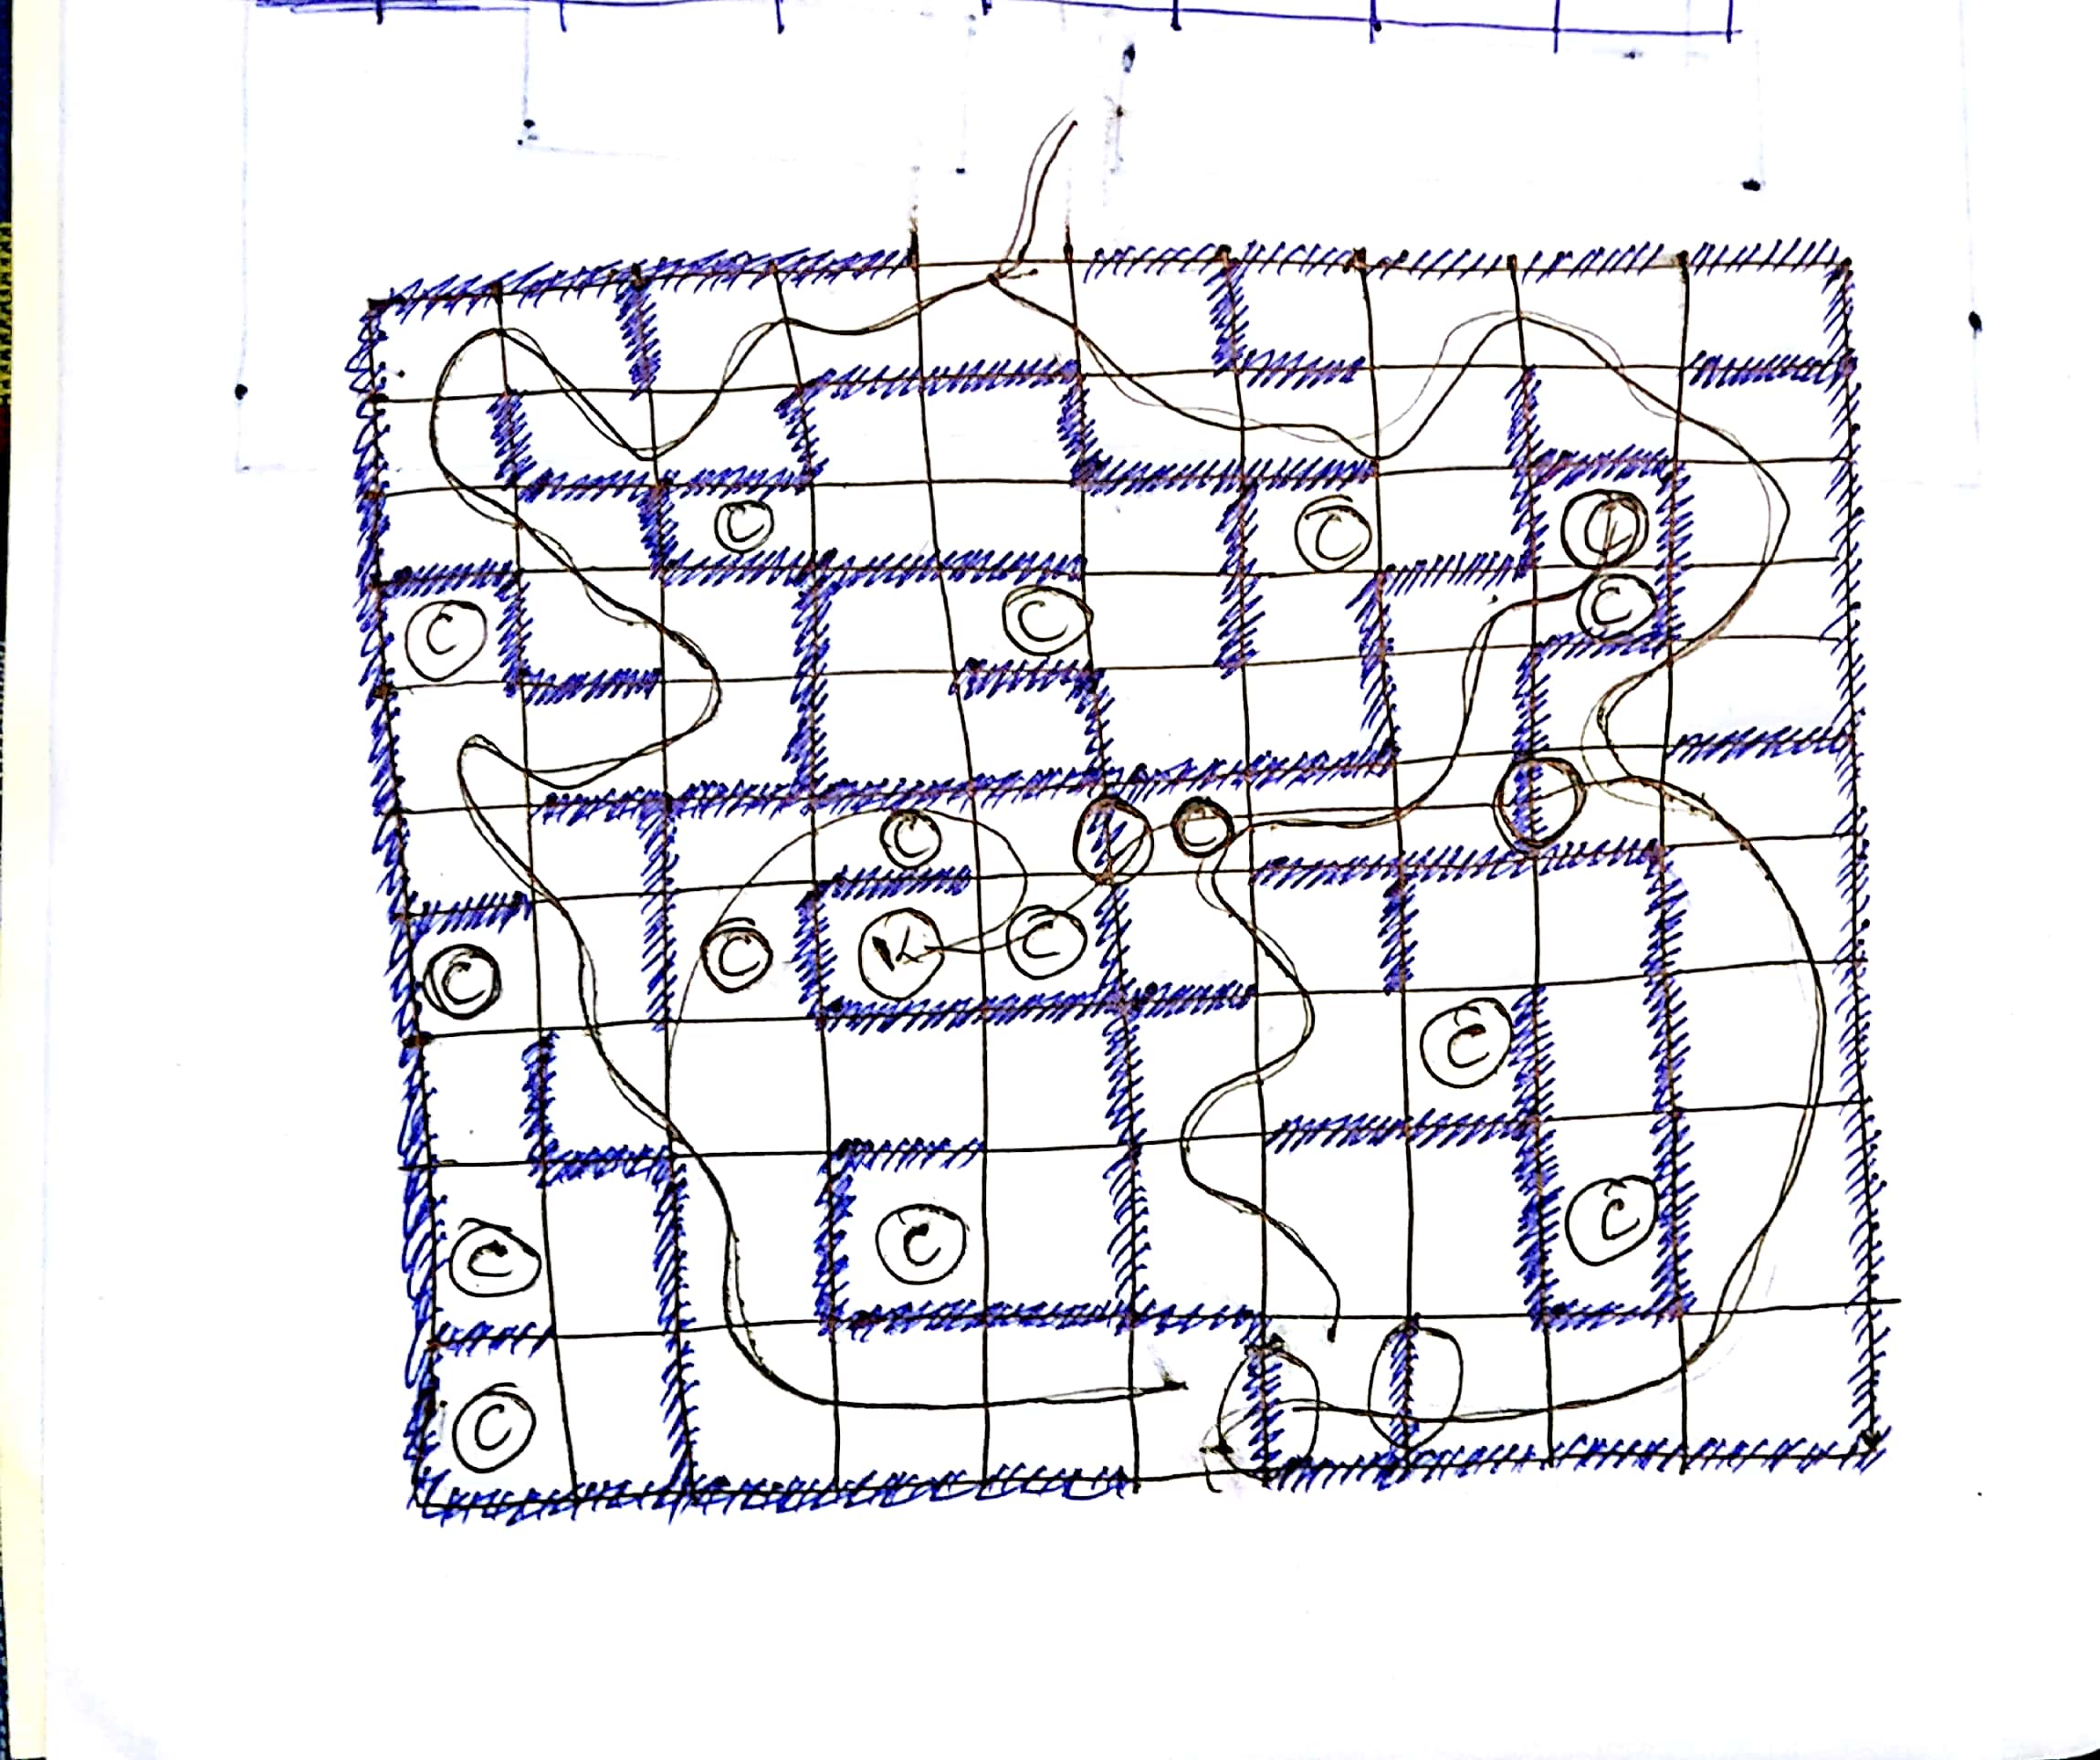 C C C
C C C
C C
C K C
C
C
C
C C
C